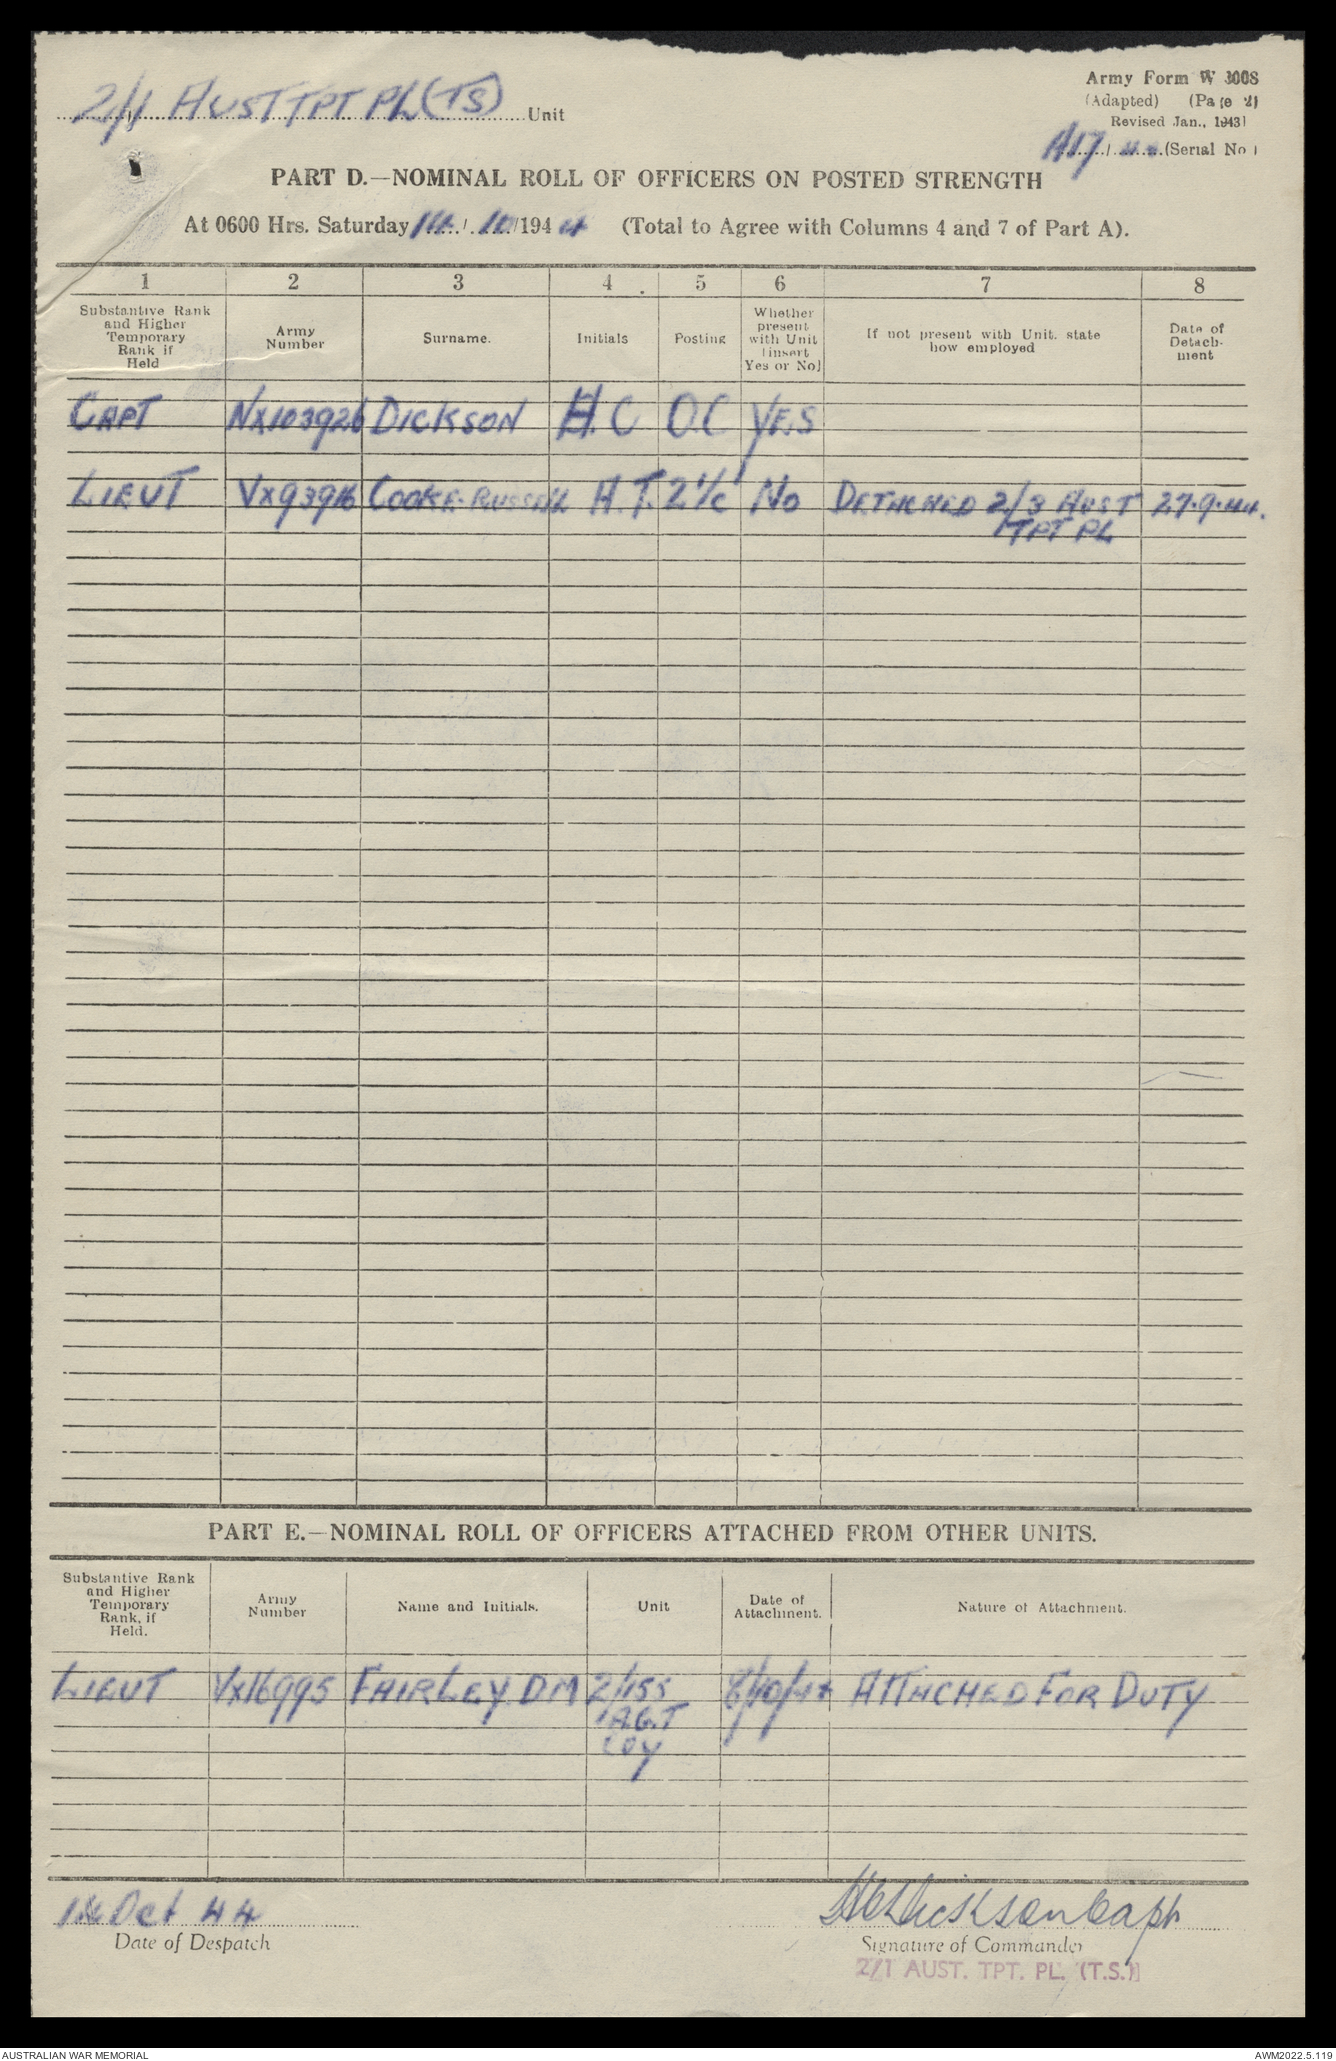 2/1 AUST TPT PL (TS) Unit
Army Form W 3008
(Adapted) (Page 2)
Revised Jan., 1943)
A17/44 (Serial No.)
PART D.—NOMINAL ROLL OF OFFICERS ON POSTED STRENGTH
At 0600 Hrs. Saturday 14/10/1944 (Total to Agree with Columns 4 and 7 of Part A).
1 2 3 4 5 6 7 8
Substantive Rank and Higher Temporary Rank if Held
Army Number
Surname.
Initials
Posting
Whether present with Unit (insert Yes or No)
If not present with Unit. state how employed
Date of Detachment
CAPT NX103926 DICKSON H.C O.C YES
LIEUT VX93916 COOKE-RUSSELL A.T. 2 i/c No DETACHED 2/3 AUST 27.9.44.
TPT PL
PART E.—NOMINAL ROLL OF OFFICERS ATTACHED FROM OTHER UNITS.
Substantive Rank and Higher Temporary Rank, if Held.
Army Number
Name and Initials.
Unit
Date of Attachment.
Nature of Attachment.
LIEUT VX16995 FAIRLEY DM 2/155 8/10/44 ATTACHED FOR DUTY
A.G.T
COY
14 Oct 44
Date of Despatch
HCDickson Capt
Signature of Commander
2/1 AUST. TPT. PL. (T.S.)
AUSTRALIAN WAR MEMORIAL
AWM2022.5.119